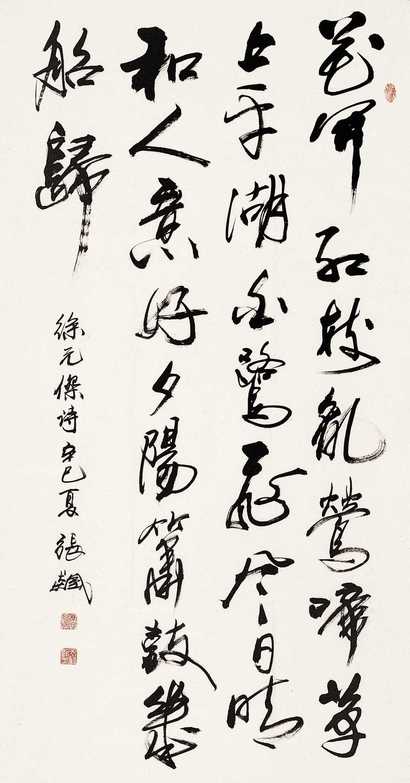 花開紅樹亂鶯啼草
長平湖白鷺飛風日晴
和人意好夕陽簫鼓幾
船歸
徐元傑詩辛巳夏張飆